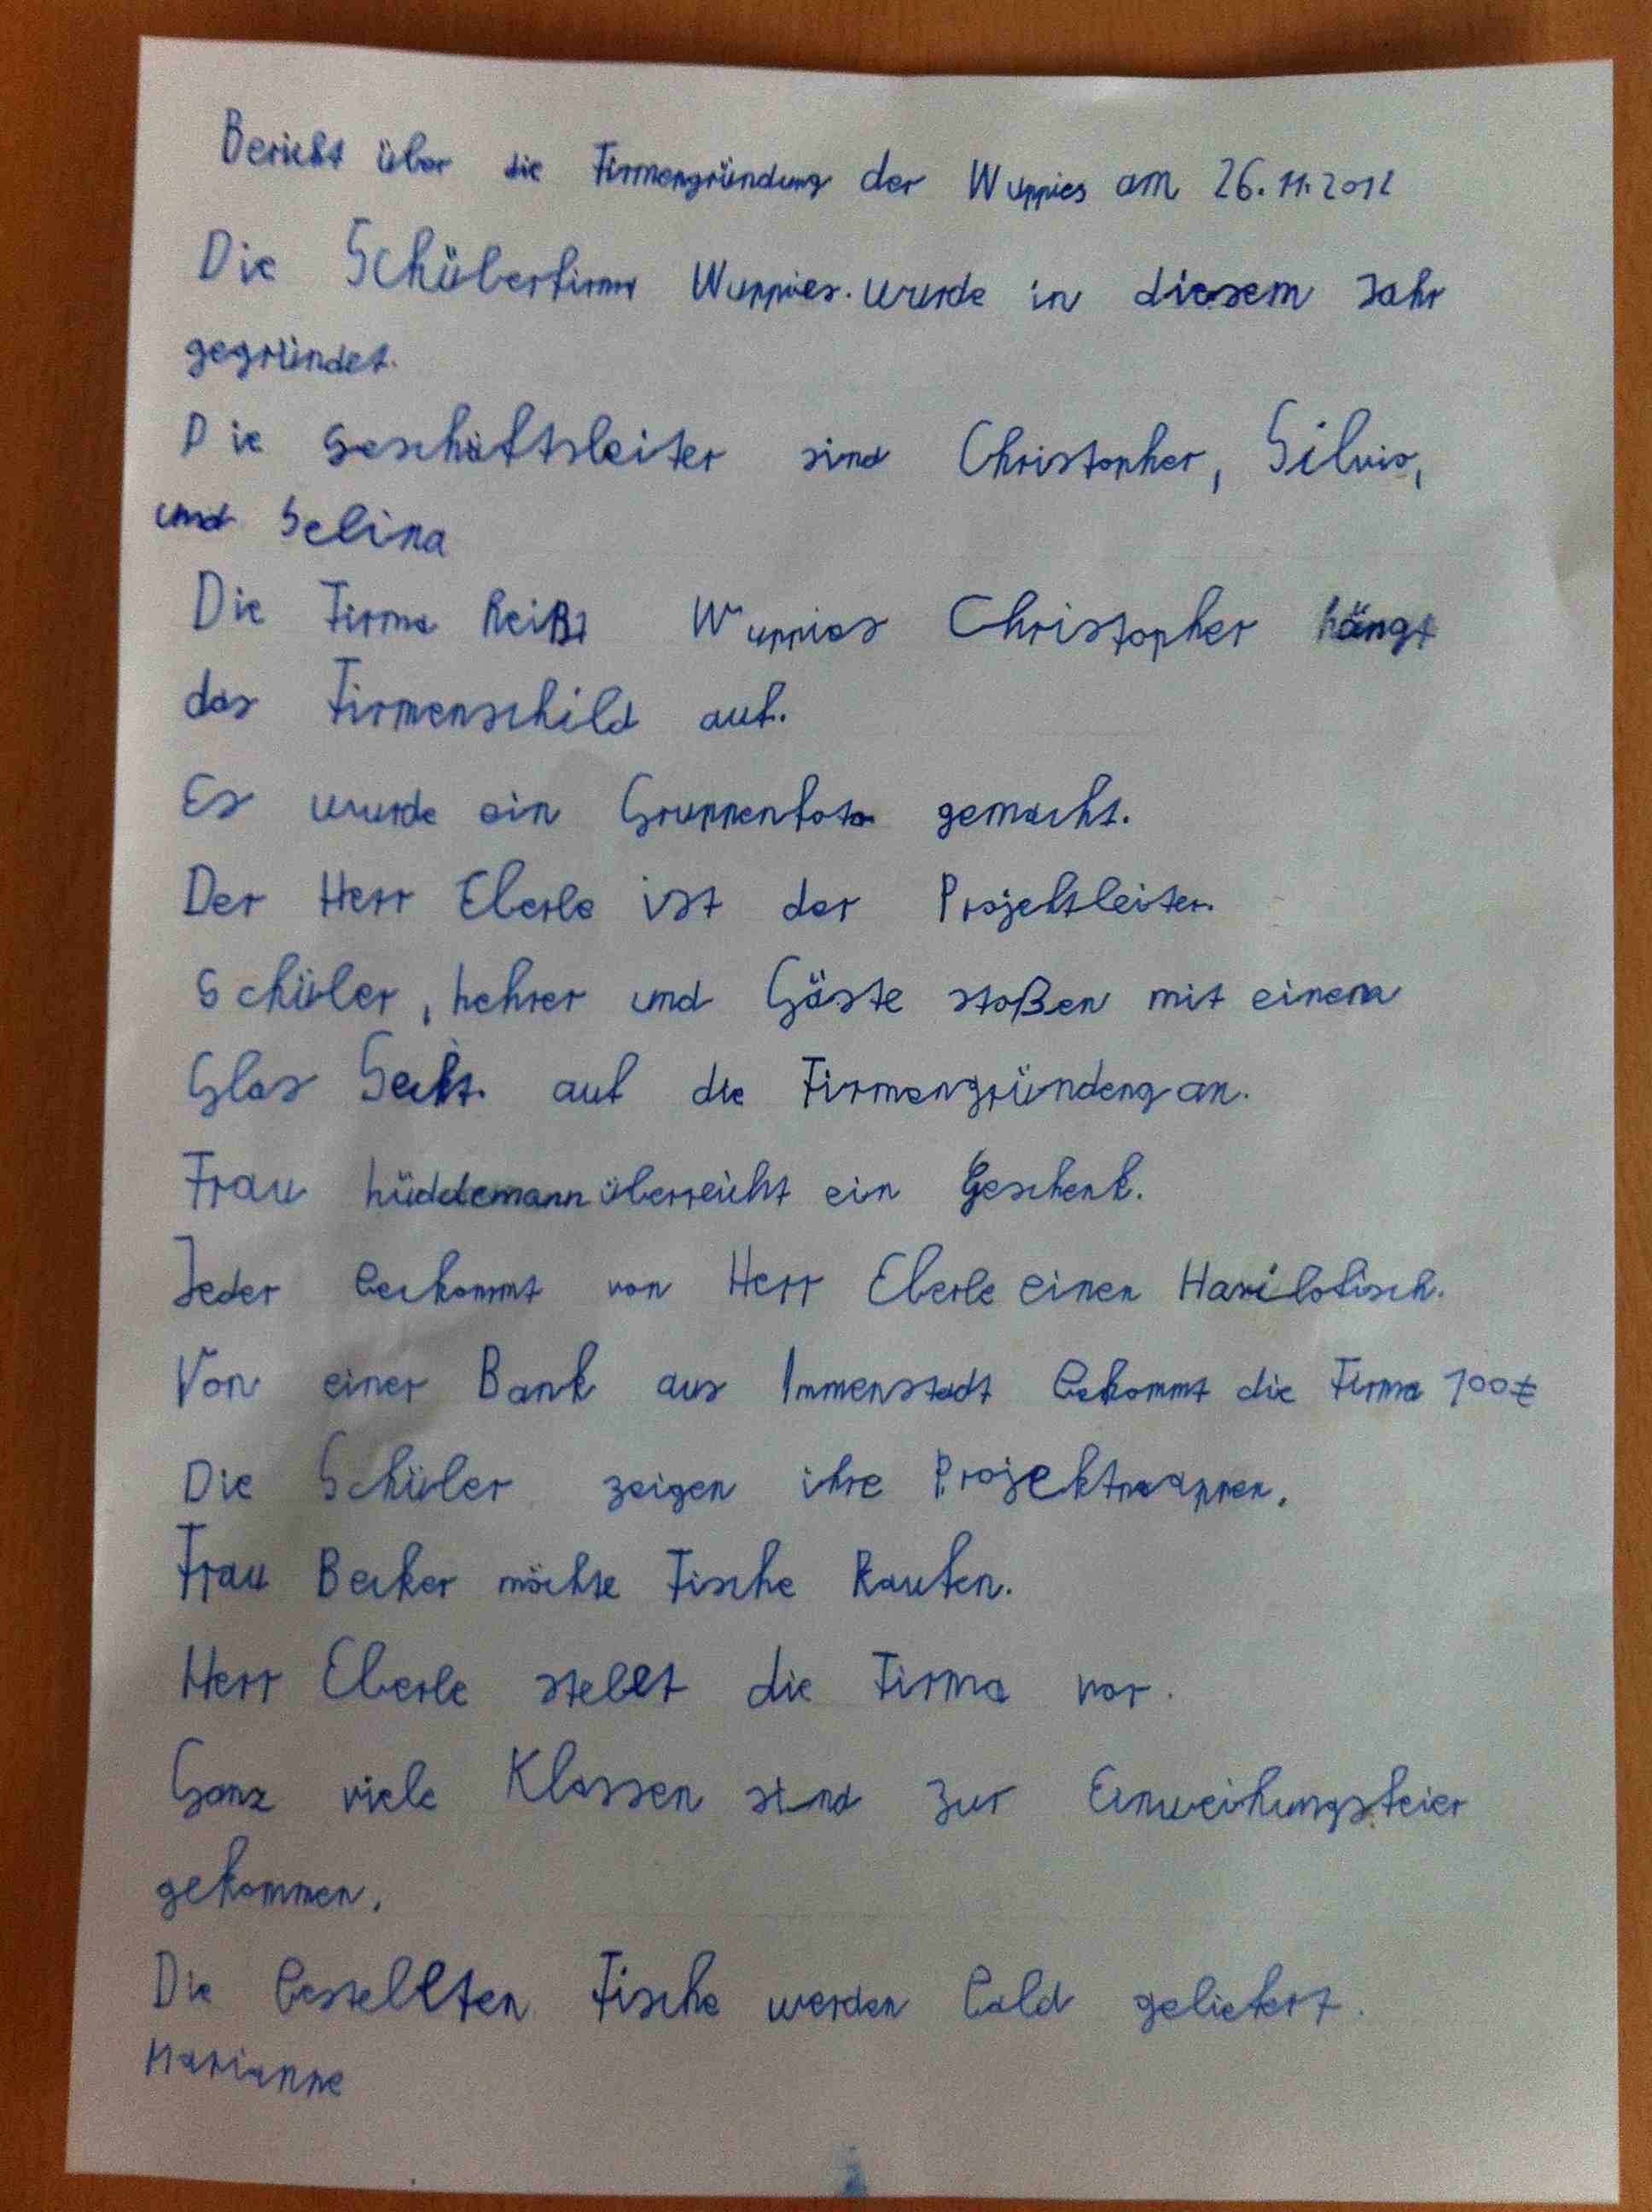 Bericht über die Firmengründung der Wuppies am 26.11.2012
Die Schülerfirma Wuppies. wurde in diesem Jahr
gegründet.
Die Geschäftsleiter sind Christopher, Silvio,
und Selina
Die Firma heißt Wuppies Christopher hängt
das Firmenschild auf.
Es wurde ein Gruppenfoto gemacht.
Der Herr Eberle ist der Projektleiter.
Schüler, Lehrer und Gäste stoßen mit einem
Glas Seckt. auf die Firmengründeng an.
Frau Lüddemann überreicht ein Geschenk.
Jeder beckommt von Herr Eberle einen Harilofisch.
Von einer Bank aus Immenstadt bekommt die Firma 100€
Die Schüler zeigen ihre Projektmappen.
Frau Becker möchte Fische kaufen.
Herr Eberle stellt die Firma vor.
Ganz viele Klassen sind zur Einweihungsfeier
gekommen.
Die bestellten Fische werden bald geliefert.
Marianne